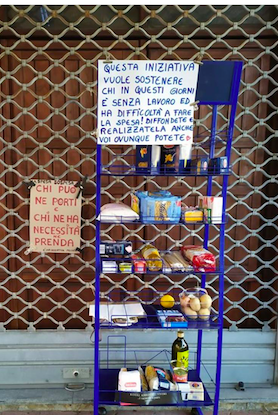 QUESTA INIZIATIVA
VUOLE SOSTENERE
CHI IN QUESTI GIORNI
È SENZA LAVORO ED
HA DIFFICOLTÀ A FARE
LA SPESA! DIFFONDETE E
REALIZZATELA ANCHE
VOI OVUNQUE POTETE
CHI PUO'
NE PORTI
CHI NE HA
NECESSITA
PRENDA